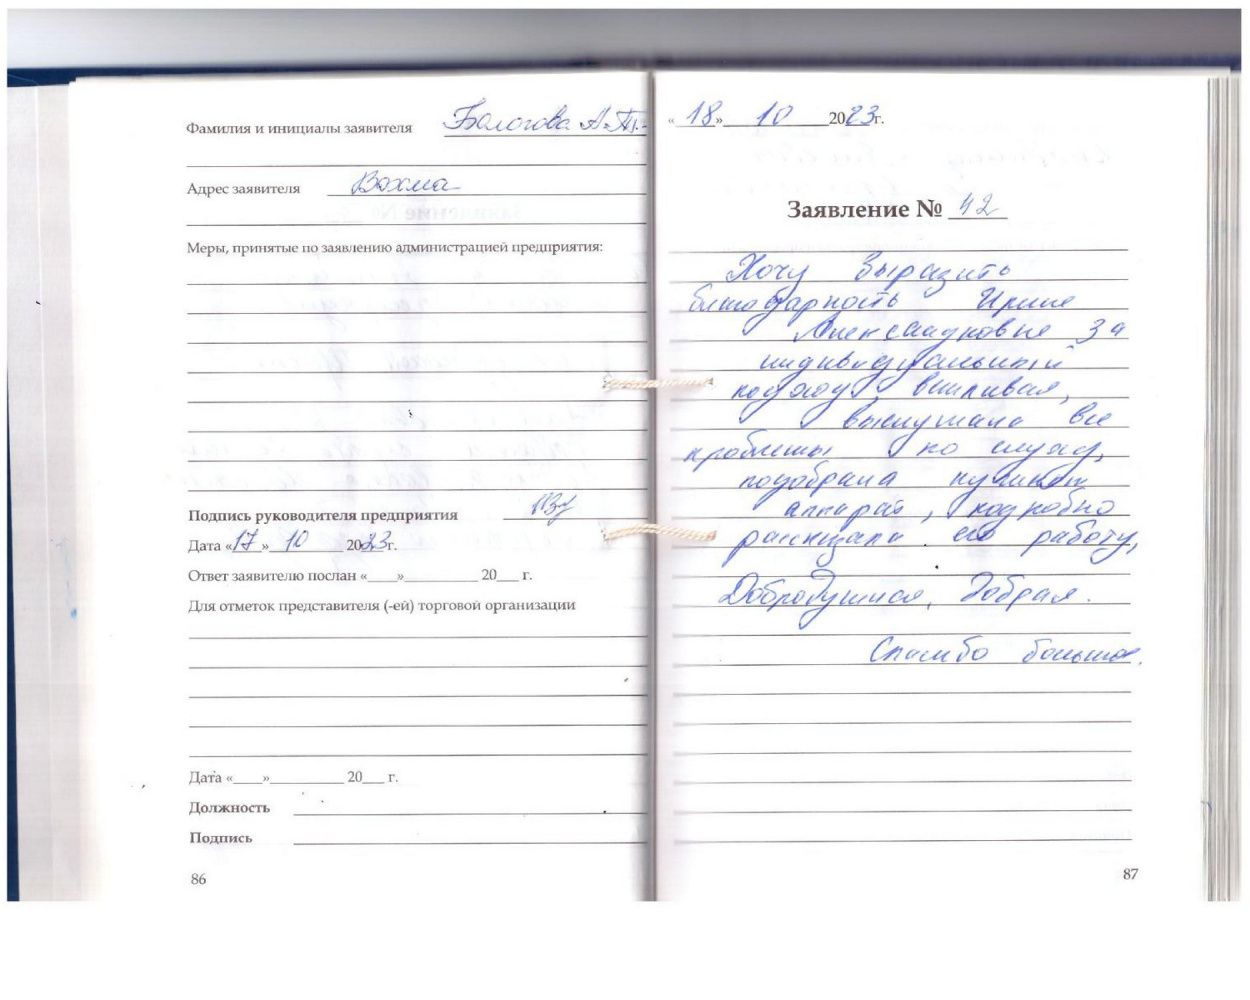 Фамилия и инициалы заявителя Бологова А.П.
Адрес заявителя Вохма
Меры, принятые по заявлению администрацией предприятия:
Подпись руководителя предприятия
Дата «17» 10 2023г.
Ответ заявителю послан «____»__________ 20___ г.
Для отметок представителя (-ей) торговой организации
Дата «____»__________ 20___ г.
Должность
Подпись
86
«18» 10 2023г.
Заявление № 42
Хочу выразить
благодарность Ирине
Александровне за
индивидуальный
подход, вежливая,
выслушала все
проблемы по слуху,
подобрала нужный
аппарат, подробно
рассказала его работу,
Добродушная, Добрая.
Спасибо большое.
87